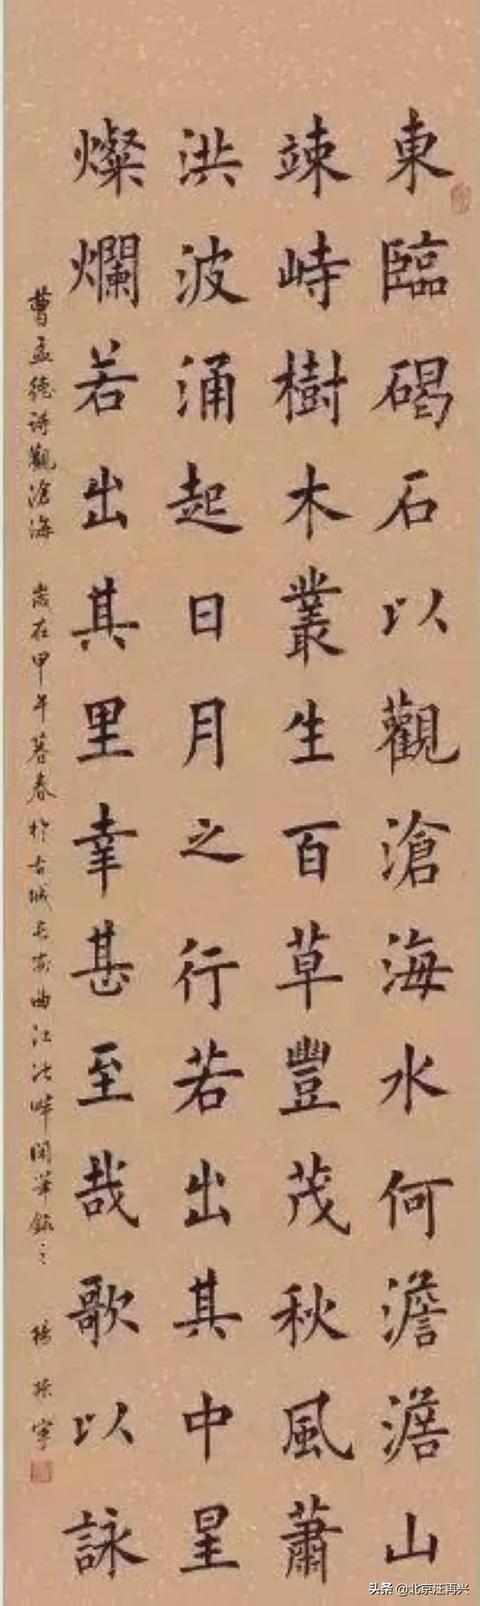 東臨碣石以觀滄海水何澹澹山
竦峙樹木叢生百草豐茂秋風蕭
洪波涌起日月之行若出其中星
燦爛若出其里幸甚至哉歌以詠
曹孟德詩觀滄海 歲在甲午暮春於古城長安曲江池畔閑筆錄之 楊
头条 @北京汪再兴